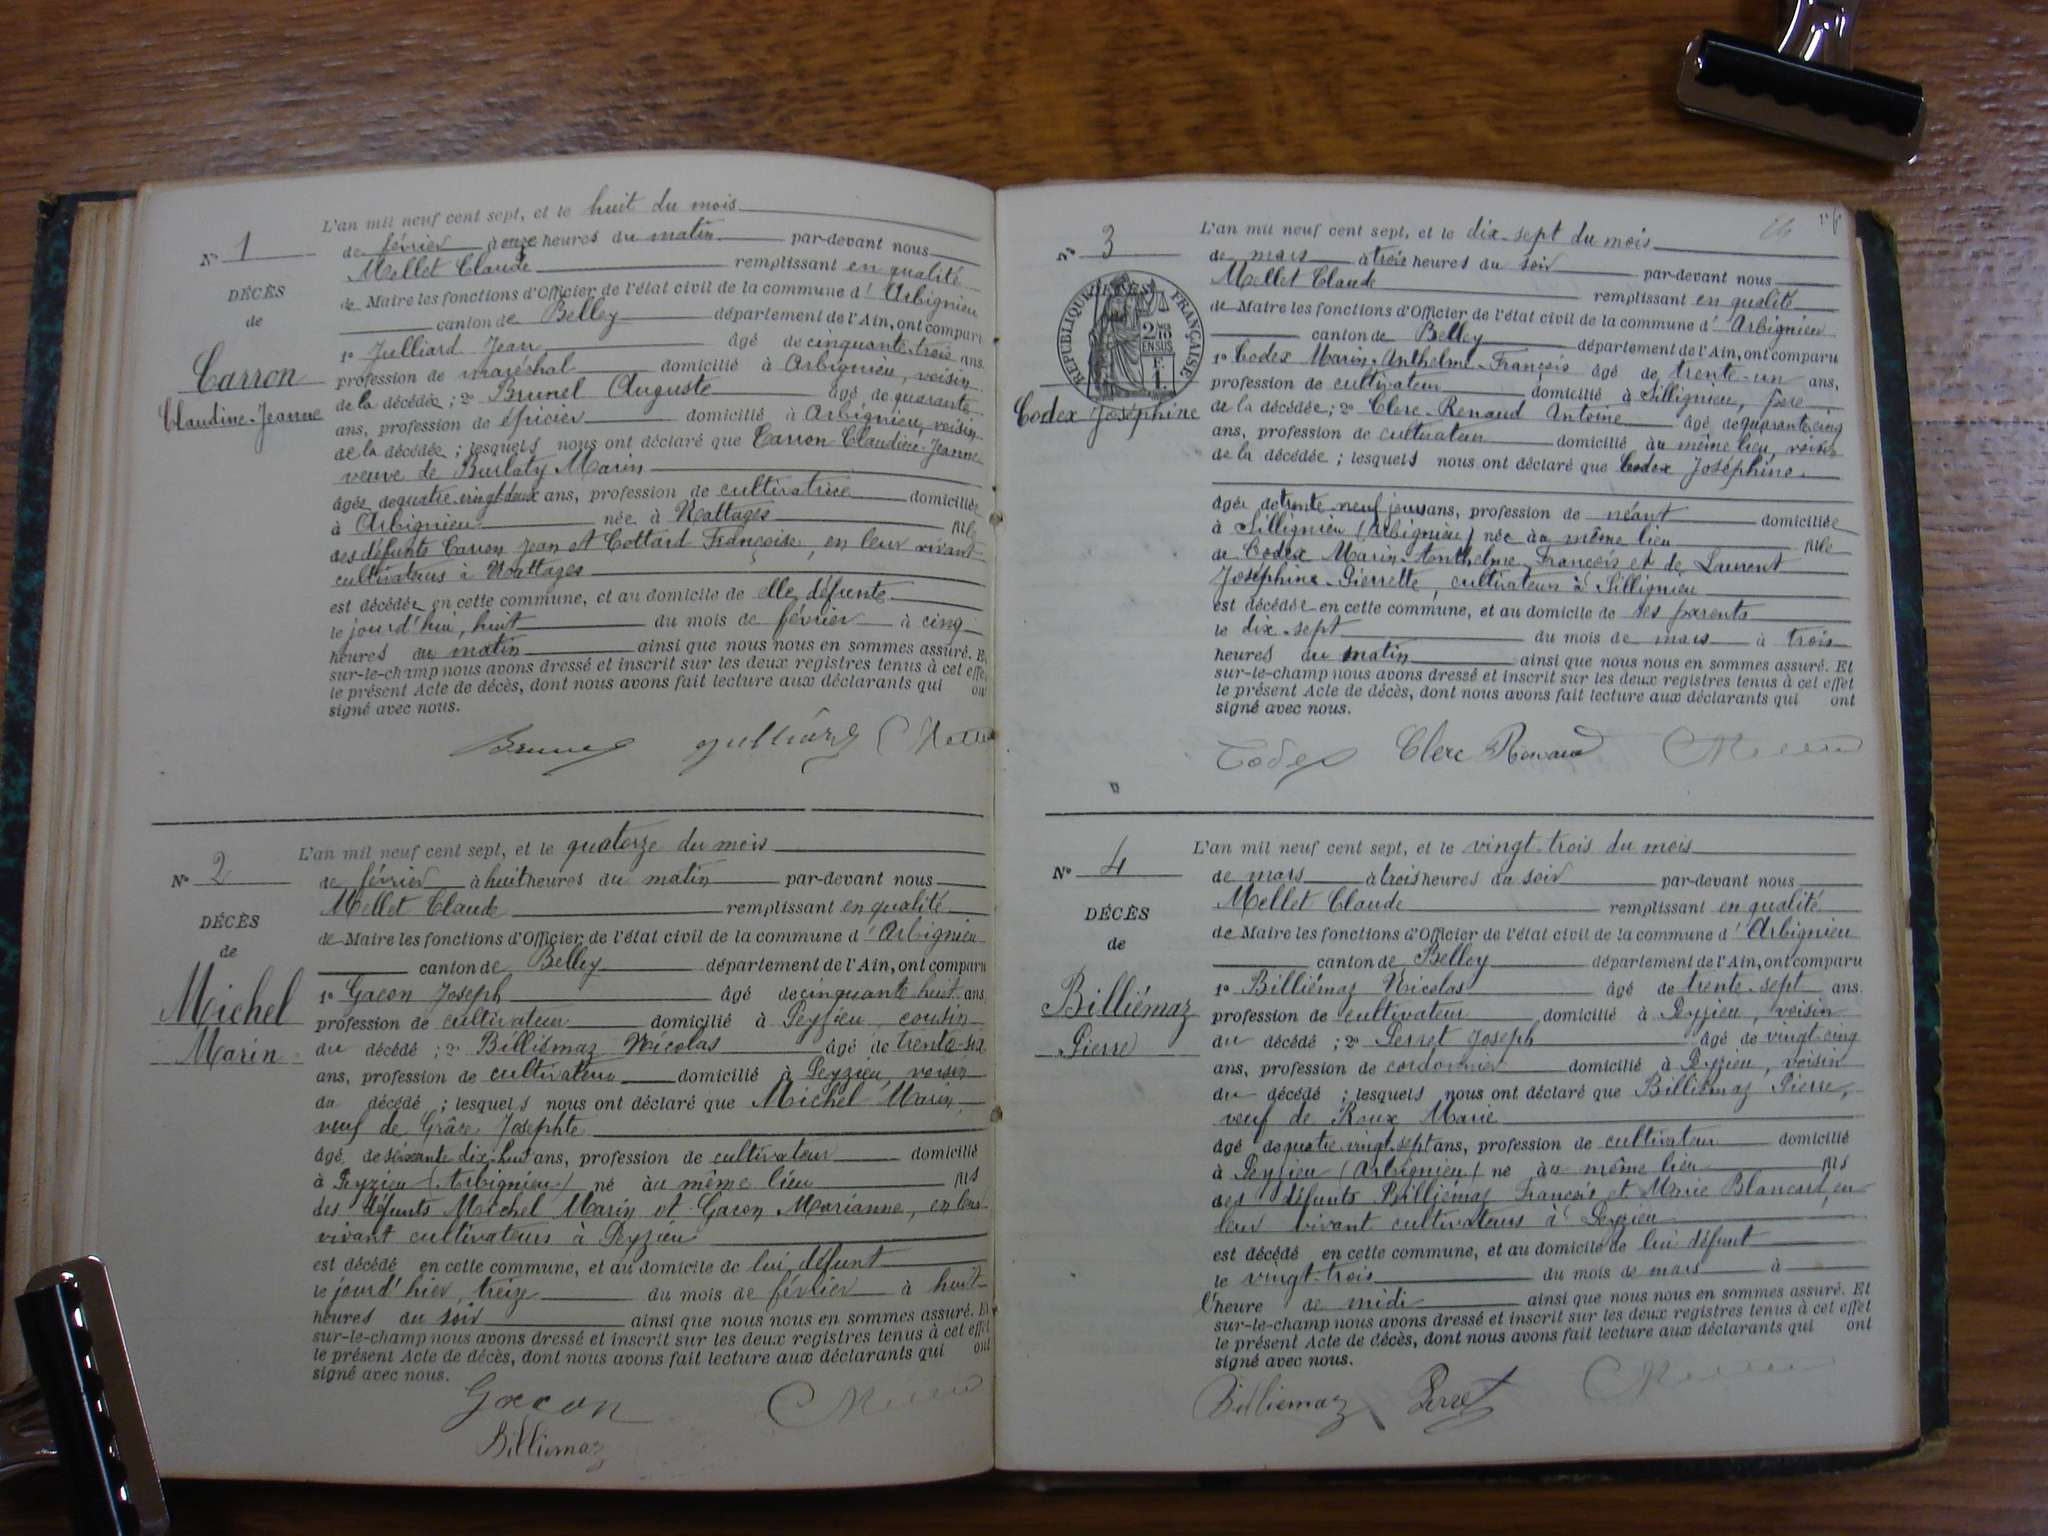 L'an mil neuf cent sept, et le huit du mois
N° 1
de février à onze heures du matin par-devant nous
Mellet Claude remplissant en qualité
DÉCÈS
de Maire les fonctions d'Officier de l'état civil de la commune d'Arbignieu
de
canton de Belley département de l'Ain, ont comparu
1º Julliard Jean âgé de cinquante-trois ans
Carron
profession de maréchal domicilié à Arbignieu, voisin
Claudine-Jeanne
de la décédée ; 2º Brunel Auguste âgé de quarante
ans, profession de épicier domicilié à Arbignieu, voisin
de la décédée ; lesquels nous ont déclaré que Carron Claudine-Jeanne
veuve de Burlaty Marin
âgée de quatre vingt deux ans, profession de cultivatrice domiciliée
à Arbignieu née à Nattages fille
des défunts Carron Jean et Cottard Françoise, en leur vivant
cultivateurs à Nattages
est décédée en cette commune, et au domicile de elle défunte
le jourd'hui, huit du mois de février à cinq
heures du matin ainsi que nous nous en sommes assuré. Et
sur-le-champ nous avons dressé et inscrit sur les deux registres tenus à cet effet
le présent Acte de décès, dont nous avons fait lecture aux déclarants qui ont
signé avec nous.
Brunel Julliard C Mellet
L'an mil neuf cent sept, et le quatorze du mois
N° 2
de février à huit heures du matin par-devant nous
Mellet Claude remplissant en qualité
DÉCÈS
de Maire les fonctions d'Officier de l'état civil de la commune d'Arbignieu
de
canton de Belley département de l'Ain, ont comparu
Michel
1º Gacon Joseph âgé de cinquante huit ans
profession de cultivateur domicilié à Peyzieu, cousin
Marin
du décédé ; 2º Billiémaz Nicolas âgé de trente-sept
ans, profession de cultivateur domicilié à Peyzieu, voisin
du décédé ; lesquels nous ont déclaré que Michel Marin,
veuf de Grâce Josephte
âgé de soixante dix-huit ans, profession de cultivateur domicilié
à Peyzieu (Arbignieu) né au même lieu fils
des défunts Michel Marin et Gacon Marianne, en leur
vivant cultivateurs à Peyzieu
est décédé en cette commune, et au domicile de lui défunt
le jourd'hier, treize du mois de février à huit
heures du soir ainsi que nous nous en sommes assuré. Et
sur-le-champ nous avons dressé et inscrit sur les deux registres tenus à cet effet
le présent Acte de décès, dont nous avons fait lecture aux déclarants qui ont
signé avec nous.
Gacon C Mellet
Billiemaz
L'an mil neuf cent sept, et le dix-sept du mois
N° 3
de mars à trois heures du soir par-devant nous
Mellet Claude remplissant en qualité
RÉPUBLIQUE FRANÇAISE
de Maire les fonctions d'Officier de l'état civil de la commune d'Arbignieu
canton de Belley département de l'Ain, ont comparu
1º Codex Marin-Anthelme-François âgé de trente-un ans,
profession de cultivateur domicilié à Sillignieu, père
Codex Joséphine
de la décédée ; 2º Clerc-Renaud Antoine âgé de quarante cinq
ans, profession de cultivateur domicilié au même lieu, voisin
de la décédée ; lesquels nous ont déclaré que Codex Joséphine
âgée de trente neuf jours ans, profession de néant domiciliée
à Sillignieu (Arbignieu) née au même lieu fille
de Codex Marin-Anthelme François et de Laurent
Joséphine-Pierrette, cultivateurs à Sillignieu
est décédée en cette commune, et au domicile de ses parents
le dix-sept du mois de mars à trois
heures du matin ainsi que nous nous en sommes assuré. Et
sur-le-champ nous avons dressé et inscrit sur les deux registres tenus à cet effet
le présent Acte de décès, dont nous avons fait lecture aux déclarants qui ont
signé avec nous.
Codex Clerc Renaud C Mellet
L'an mil neuf cent sept, et le vingt-trois du mois
N° 4
de mars à trois heures du soir par-devant nous
Mellet Claude remplissant en qualité
DÉCÈS
de Maire les fonctions d'Officier de l'état civil de la commune d'Arbignieu
de
canton de Belley département de l'Ain, ont comparu
Billiémaz
1º Billiémaz Nicolas âgé de trente-sept ans
profession de cultivateur domicilié à Peyzieu, voisin
Pierre
du décédé ; 2º Perret Joseph âgé de vingt-cinq
ans, profession de cordonnier domicilié à Peyzieu, voisin
du décédé ; lesquels nous ont déclaré que Billiémaz Pierre,
veuf de Roux Marie
âgé de quatre vingt sept ans, profession de cultivateur domicilié
à Peyzieu (Arbignieu) né au même lieu fils
des défunts Billiémaz François et Marie Blancard, en
leur vivant cultivateurs à Peyzieu
est décédé en cette commune, et au domicile de lui défunt
le vingt-trois du mois de mars à
l'heure de midi ainsi que nous nous en sommes assuré. Et
sur-le-champ nous avons dressé et inscrit sur les deux registres tenus à cet effet
le présent Acte de décès, dont nous avons fait lecture aux déclarants qui ont
signé avec nous.
Billiemaz Perret C Mellet